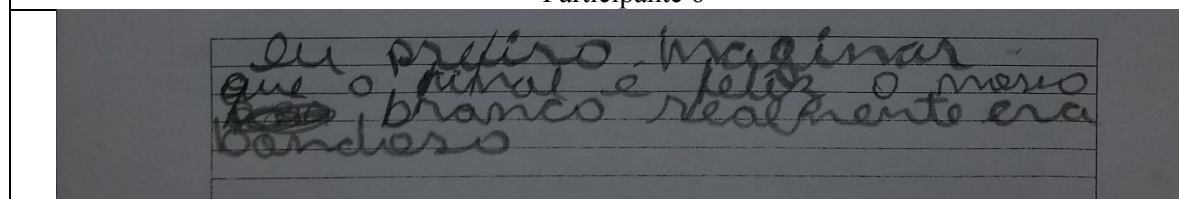 Participante 6
eu prefiro imaginar
que o final e feliz o moso
branco realmente era
bondoso